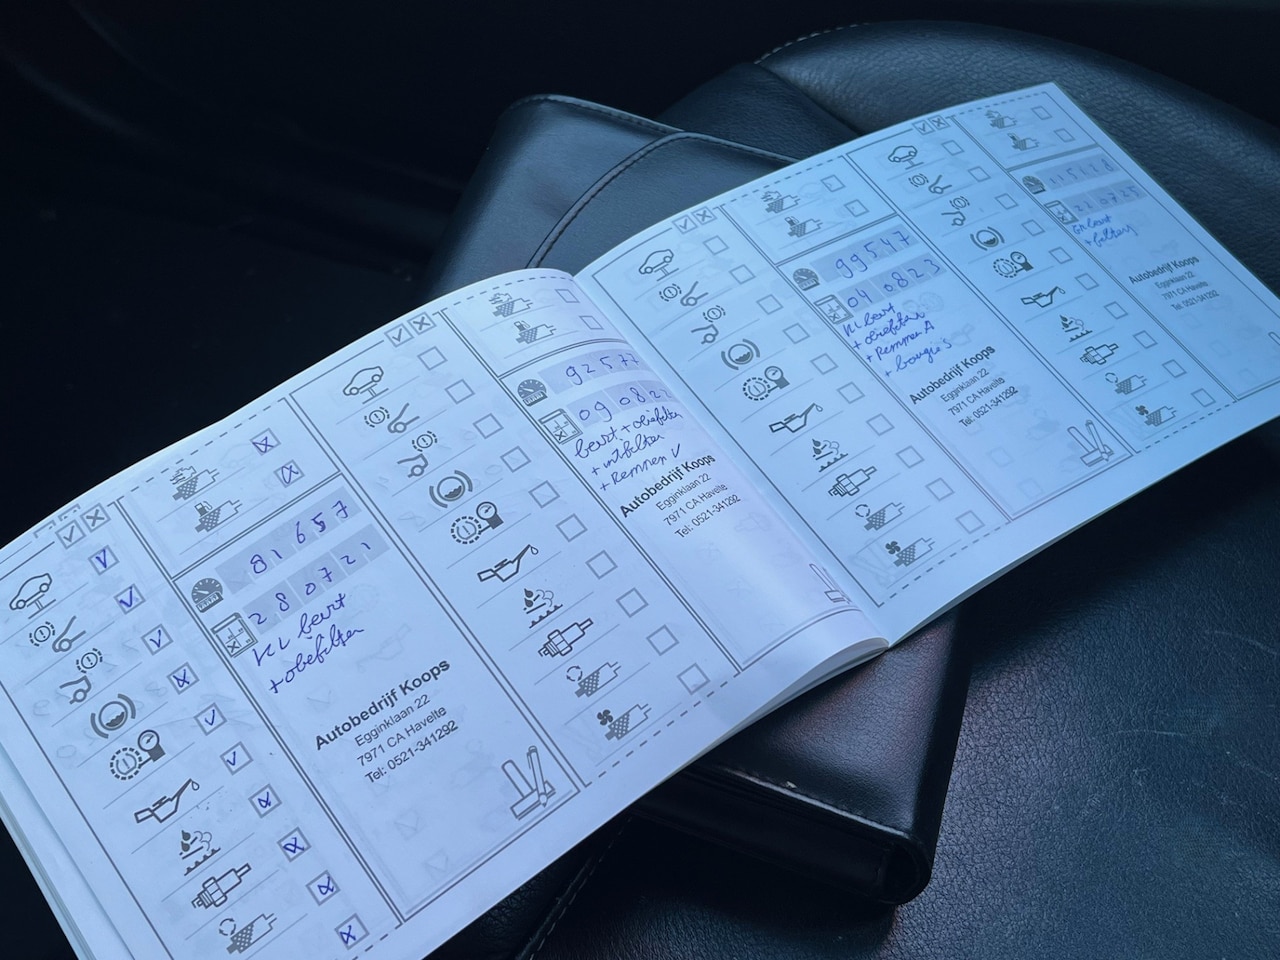 81657
280721
KL beurt
+ oliefilter
Autobedrijf Koops
Egginklaan 22
7971 CA Havelte
Tel: 0521-341292
92572
090822
beurt + oliefilter
+ intfilter
+ Remmen √
Autobedrijf Koops
Egginklaan 22
7971 CA Havelte
Tel: 0521-341292
99547
040823
KL beurt
+ oliefilter
+ Remmen A
+ bougie's
Autobedrijf Koops
Egginklaan 22
7971 CA Havelte
Tel: 0521-341292
220725
GR beurt
+ filters
Autobedrijf Koops
Egginklaan 22
7971 CA Havelte
Tel: 0521-341292